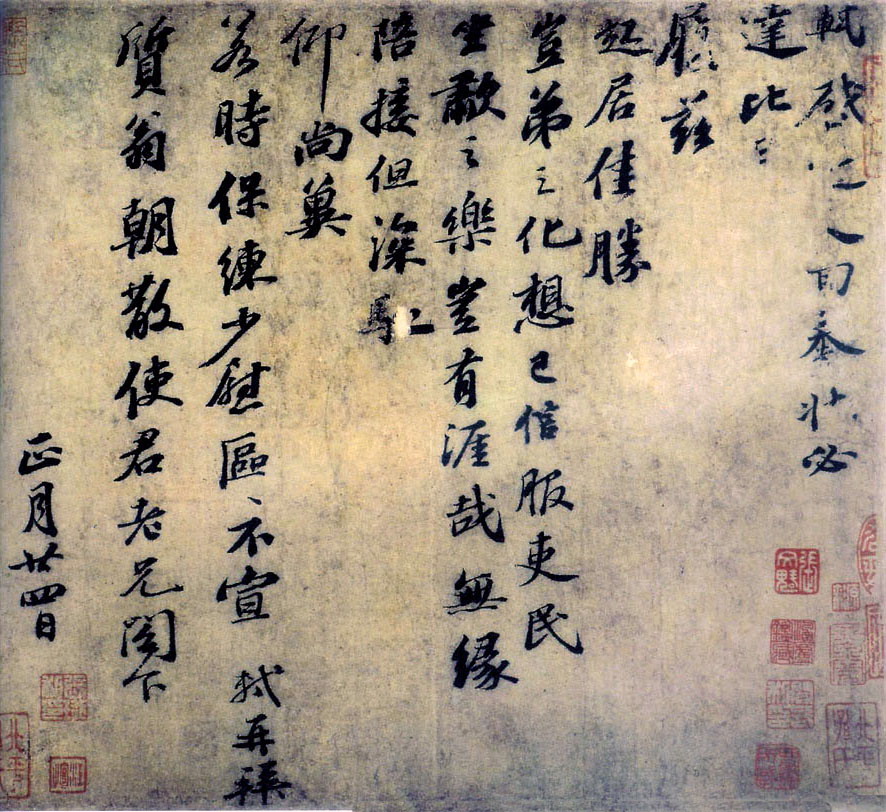 軾啓近人回奉狀必
達比日
履茲
起居佳勝
豈弟之化想已信服吏民
坐歗之樂豈有涯哉無緣
陪接但深馳
仰尚冀
若時保練少慰區〻不宣 軾再拜
質翁朝散使君老兄閤下
正月廿四日